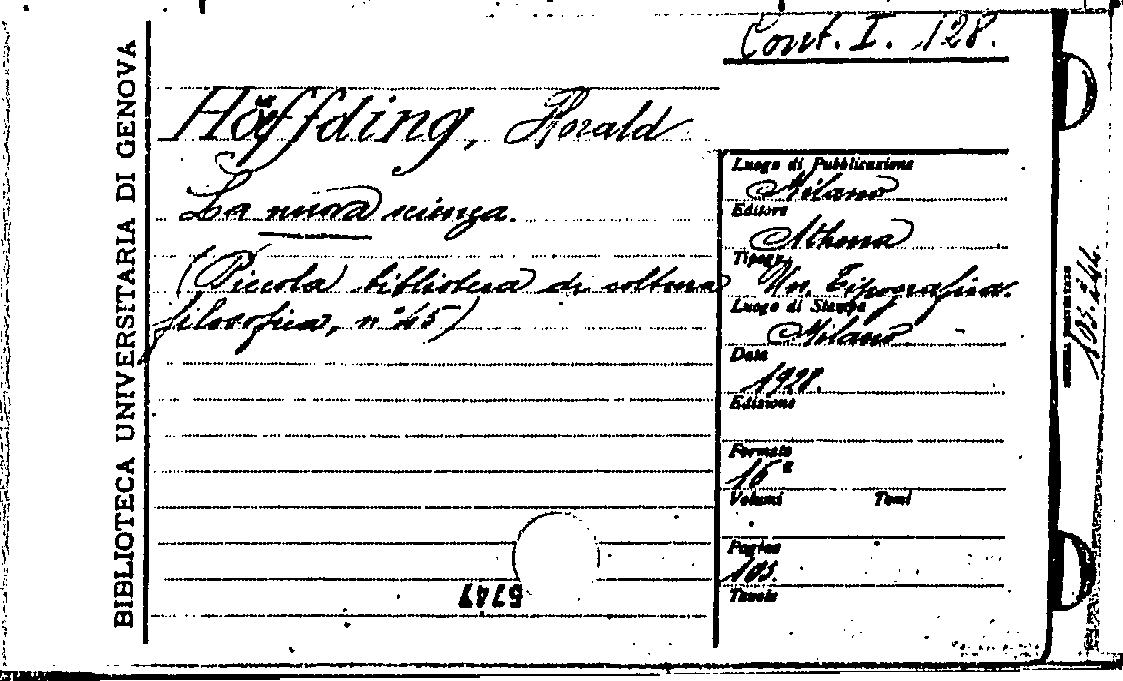 Cont. I. 128.
BIBLIOTECA UNIVERSITARIA DI GENOVA
Höffding, Harald
La nuova scienza.
(Piccola biblioteca di coltura
filosofica, n° 45)
Luogo di Pubblicazione
Milano
Editore
Athena
Tipogr.
Un. Tipografica.
Luogo di Stampa
Milano
Data
1928.
Edizione
Formato
16°
Volumi Tomi
Pagine
103.
Tavole
5747